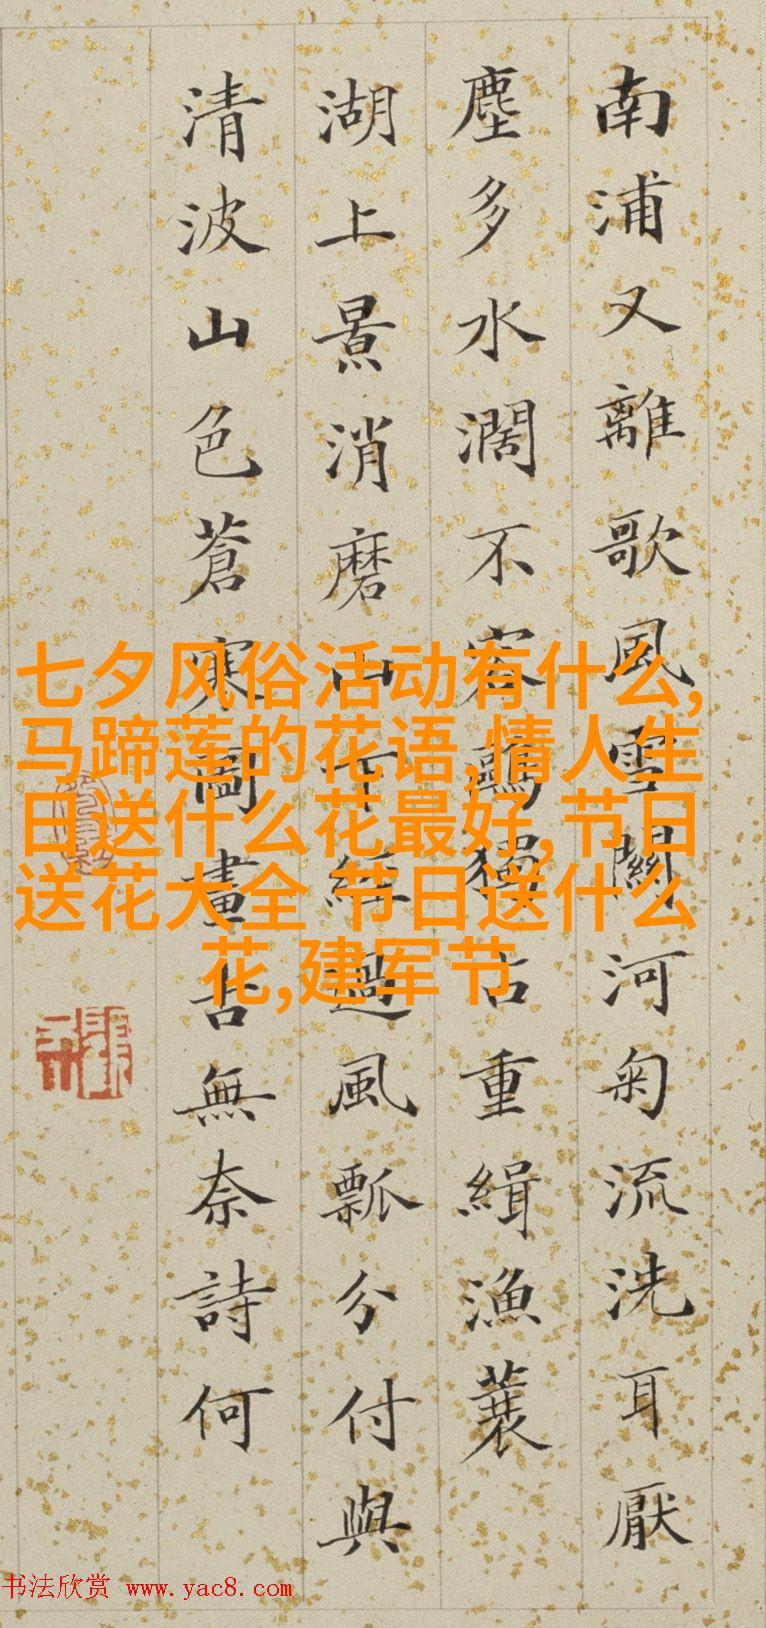 南浦又離歌風雪關河匊流洗耳厭
塵多水濶不容鷗獨占重緝漁蓑
湖上景消磨山下經過風瓢分付與
清波山色蒼寒圖畫古無奈詩何
七夕风俗活动有什么,
马蹄莲的花语,情人生
日送什么花最好,节日
送花大全 节日送什么
花,建军节
书法欣赏 www.yac8.com